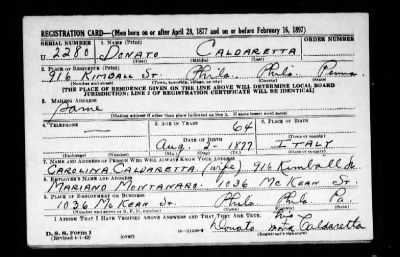 REGISTRATION CARD—(Men born on or after April 28, 1877 and on or before February 16, 1897)
SERIAL NUMBER 1. NAME (Print) ORDER NUMBER
U 2280 DONATO CALDARETTA
(First) (Middle) (Last)
2. PLACE OF RESIDENCE (Print)
916 KIMBALL St. Phila. Phila. Penna.
(Number and street) (Town, township, village, or city) (County) (State)
[THE PLACE OF RESIDENCE GIVEN ON THE LINE ABOVE WILL DETERMINE LOCAL BOARD
JURISDICTION; LINE 2 OF REGISTRATION CERTIFICATE WILL BE IDENTICAL]
3. MAILING ADDRESS
Same
[Mailing address if other than place indicated on line 2. If same insert word same]
4. TELEPHONE 5. AGE IN YEARS 6. PLACE OF BIRTH
— 64
DATE OF BIRTH (Town or county)
Aug. 2- 1877 ITALY
(Mo.) (Day) (Yr.) (State or country)
7. NAME AND ADDRESS OF PERSON WHO WILL ALWAYS KNOW YOUR ADDRESS
CAROLINA CALDARETTA. (wife) 916 Kimball St.
8. EMPLOYER'S NAME AND ADDRESS
MARIANO MONTANARO. 1036 McKEAN St.
9. PLACE OF EMPLOYMENT OR BUSINESS
1036 McKean St. Phila Phila Pa.
(Number and street or R. F. D. number) (Town) (County) (State)
I AFFIRM THAT I HAVE VERIFIED ABOVE ANSWERS AND THAT THEY ARE TRUE.
D. S. S. Form 1 his
(Revised 4-1-42) (over) Donato mark Caldaretta
(Registrant's signature)